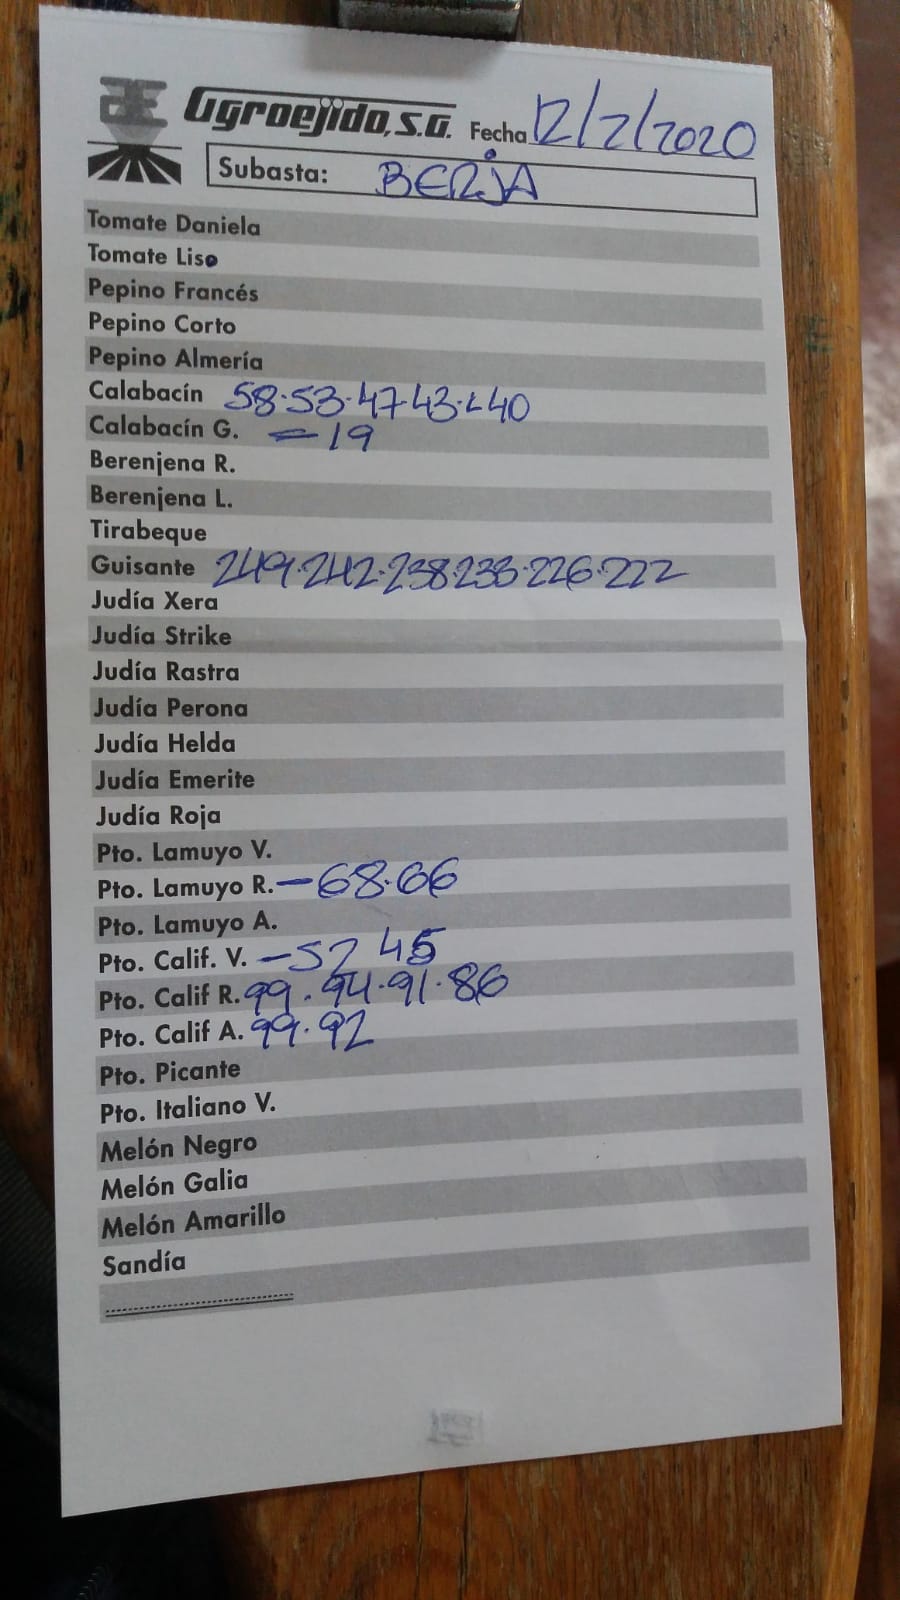 Agroejido, S.A. Fecha 12/2/2020
Subasta: BERJA
Tomate Daniela
Tomate Liso
Pepino Francés
Pepino Corto
Pepino Almería
Calabacín 58·53·47·43·40
Calabacín G. = 19
Berenjena R.
Berenjena L.
Tirabeque
Guisante 249·242·238·233·226·222
Judía Xera
Judía Strike
Judía Rastra
Judía Perona
Judía Helda
Judía Emerite
Judía Roja
Pto. Lamuyo V.
Pto. Lamuyo R. — 68·66
Pto. Lamuyo A.
Pto. Calif. V. — 52 45
Pto. Calif R. 99·94·91·86
Pto. Calif A. 99·92
Pto. Picante
Pto. Italiano V.
Melón Negro
Melón Galia
Melón Amarillo
Sandía